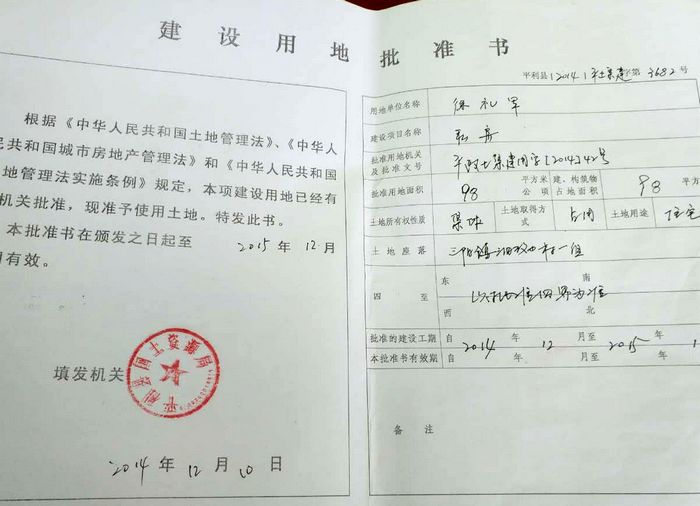 建设用地批准书
根据《中华人民共和国土地管理法》、《中华人
民共和国城市房地产管理法》和《中华人民共和国
地管理法实施条例》规定，本项建设用地已经有
机关批准，现准予使用土地。特发此书。
本批准书在颁发之日起至 2015 年 12 月
有效。
填发机关
平利县国土资源局
2014 年 12 月 10 日
平利县[2014]平土集建字第3682号
用地单位名称 徐礼军
建设项目名称 私房
批准用地机关及批准文号 平政土集建用字[2014]42号
批准用地面积 98 平方米 公项 建、构筑物占地面积 98 平方
土地所有权性质 集体 土地取得方式 占用 土地用途 住宅
土地座落 三阳镇 村一组
四至 东 南 西 北 以 四界为准
批准的建设工期 自 2014 年 12 月至 2015 年 1
本批准书有效期 自 年 月至 年
备注